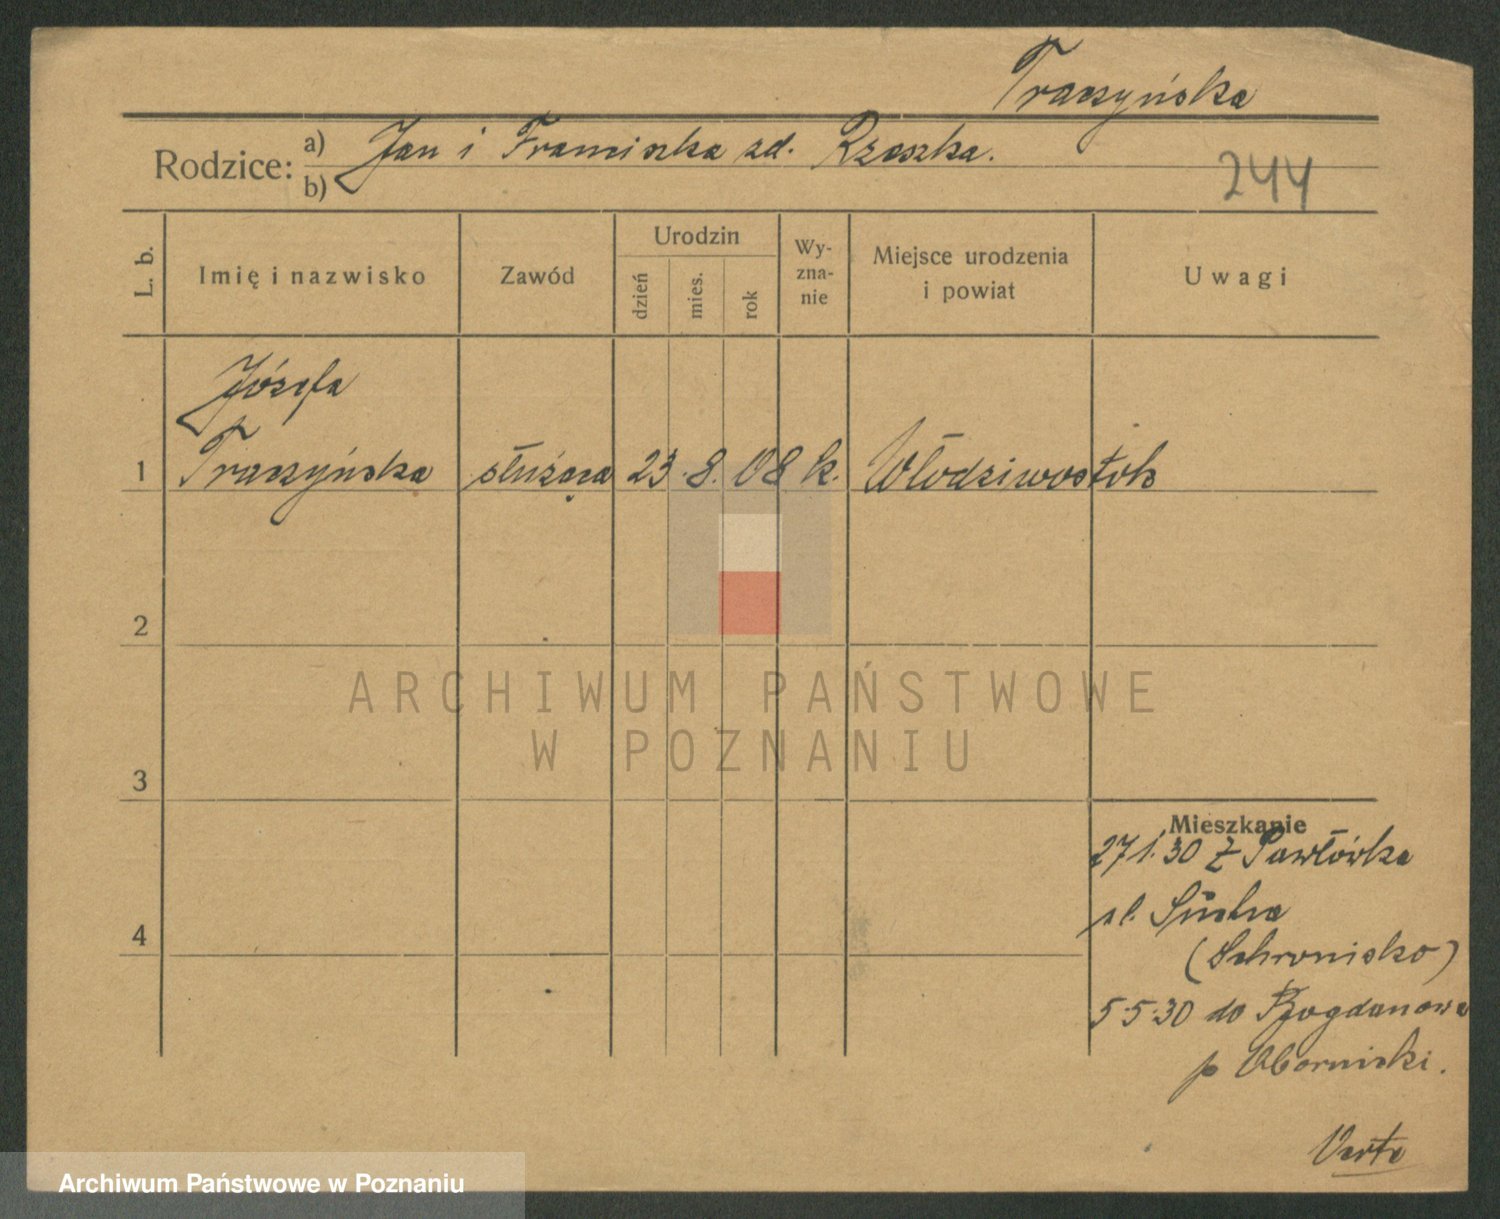 Traczyńska
Rodzice: a) Jan i Franciszka zd. Rzeszka.
b)
244
L. b. Imię i nazwisko Zawód Urodzin dzień mies. rok Wy-zna-nie Miejsce urodzenia i powiat Uwagi
Józefa
1 Traczyńska służąca 23. 8. 08 k. Włodziwostok
2
ARCHIWUM PAŃSTWOWE
W POZNANIU
3
Mieszkanie
27 1. 30 z Pawłówka
ul. Sucha
4
(Schronisko)
5.5.30 do Bogdanowa
p Obornicki.
Verte
Archiwum Państwowe w Poznaniu